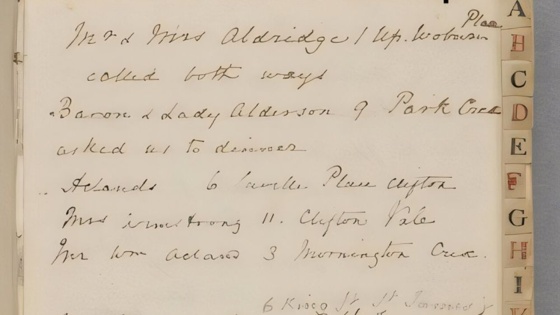 Mr & Mrs Aldridge 1 Up. Woburn Place
called both ways
Baron & Lady Alderson 9 Park Cres
asked us to dinner
Aclands 6 Saville Place Clifton
Mrs Armstrong 11. Clifton Vale
Mr Wm Acland 3 Mornington Cres.
6 King St St James's
A
B
C
D
E
F
G
H
I